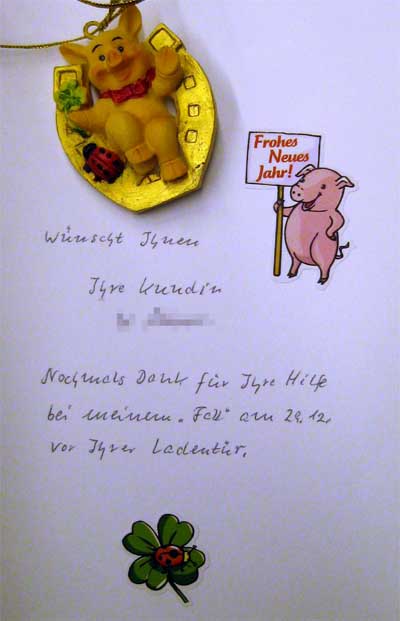 Frohes
Neues
Jahr!
Wünscht Ihnen
Ihre Kundin
Nochmals Dank für Ihre Hilfe
bei meinem „Fall" am 29.12.
vor Ihrer Ladentür.